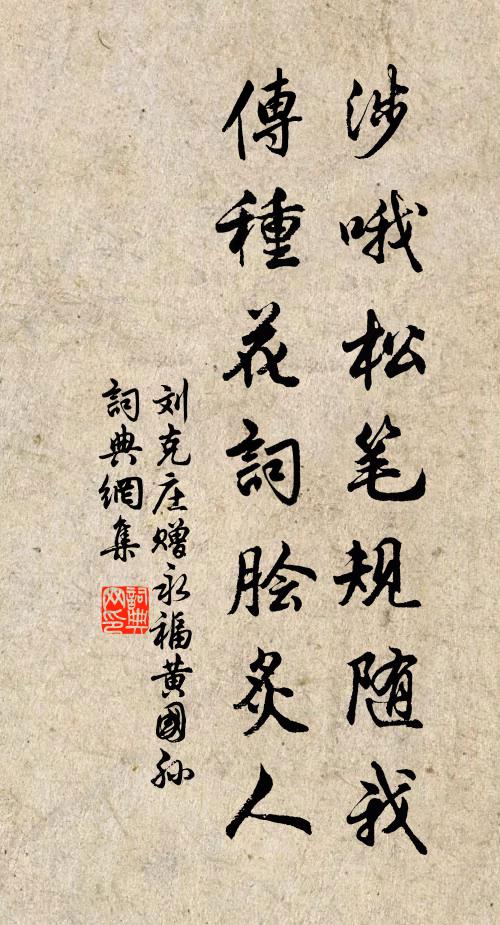 涉哦松笔規随我
傳種花詞脍炙人
刘克庄赠永福黄國孙
詞典網集
詞典
网印